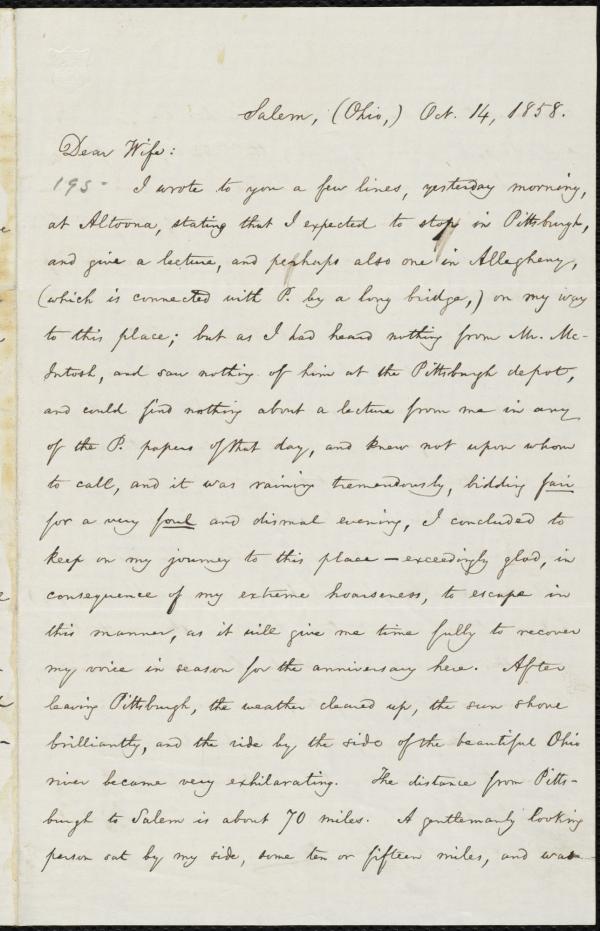 Salem, (Ohio,) Oct. 14, 1858.
Dear Wife:
195- I wrote to you a few lines, yesterday morning,
at Altoona, stating that I expected to stop in Pittsburgh,
and give a lecture, and perhaps also one in Allegheny,
(which is connected with P. by a long bridge,) on my way
to this place; but as I had heard nothing from Mr. Mc-
Intosh, and saw nothing of him at the Pittsburgh depot,
and could find nothing about a lecture from me in any
of the P. papers of that day, and knew not upon whom
to call, and it was raining tremendously, bidding fair
for a very foul and dismal evening, I concluded to
keep on my journey to this place — exceedingly glad, in
consequence of my extreme hoarseness, to escape in
this manner, as it will give me time fully to recover
my voice in season for the anniversary here. After
leaving Pittsburgh, the weather cleared up, the sun shone
brilliantly, and the ride by the side of the beautiful Ohio
river became very exhilarating. The distance from Pitts-
burgh to Salem is about 70 miles. A gentlemanly looking
person sat by my side, some ten or fifteen miles, and was